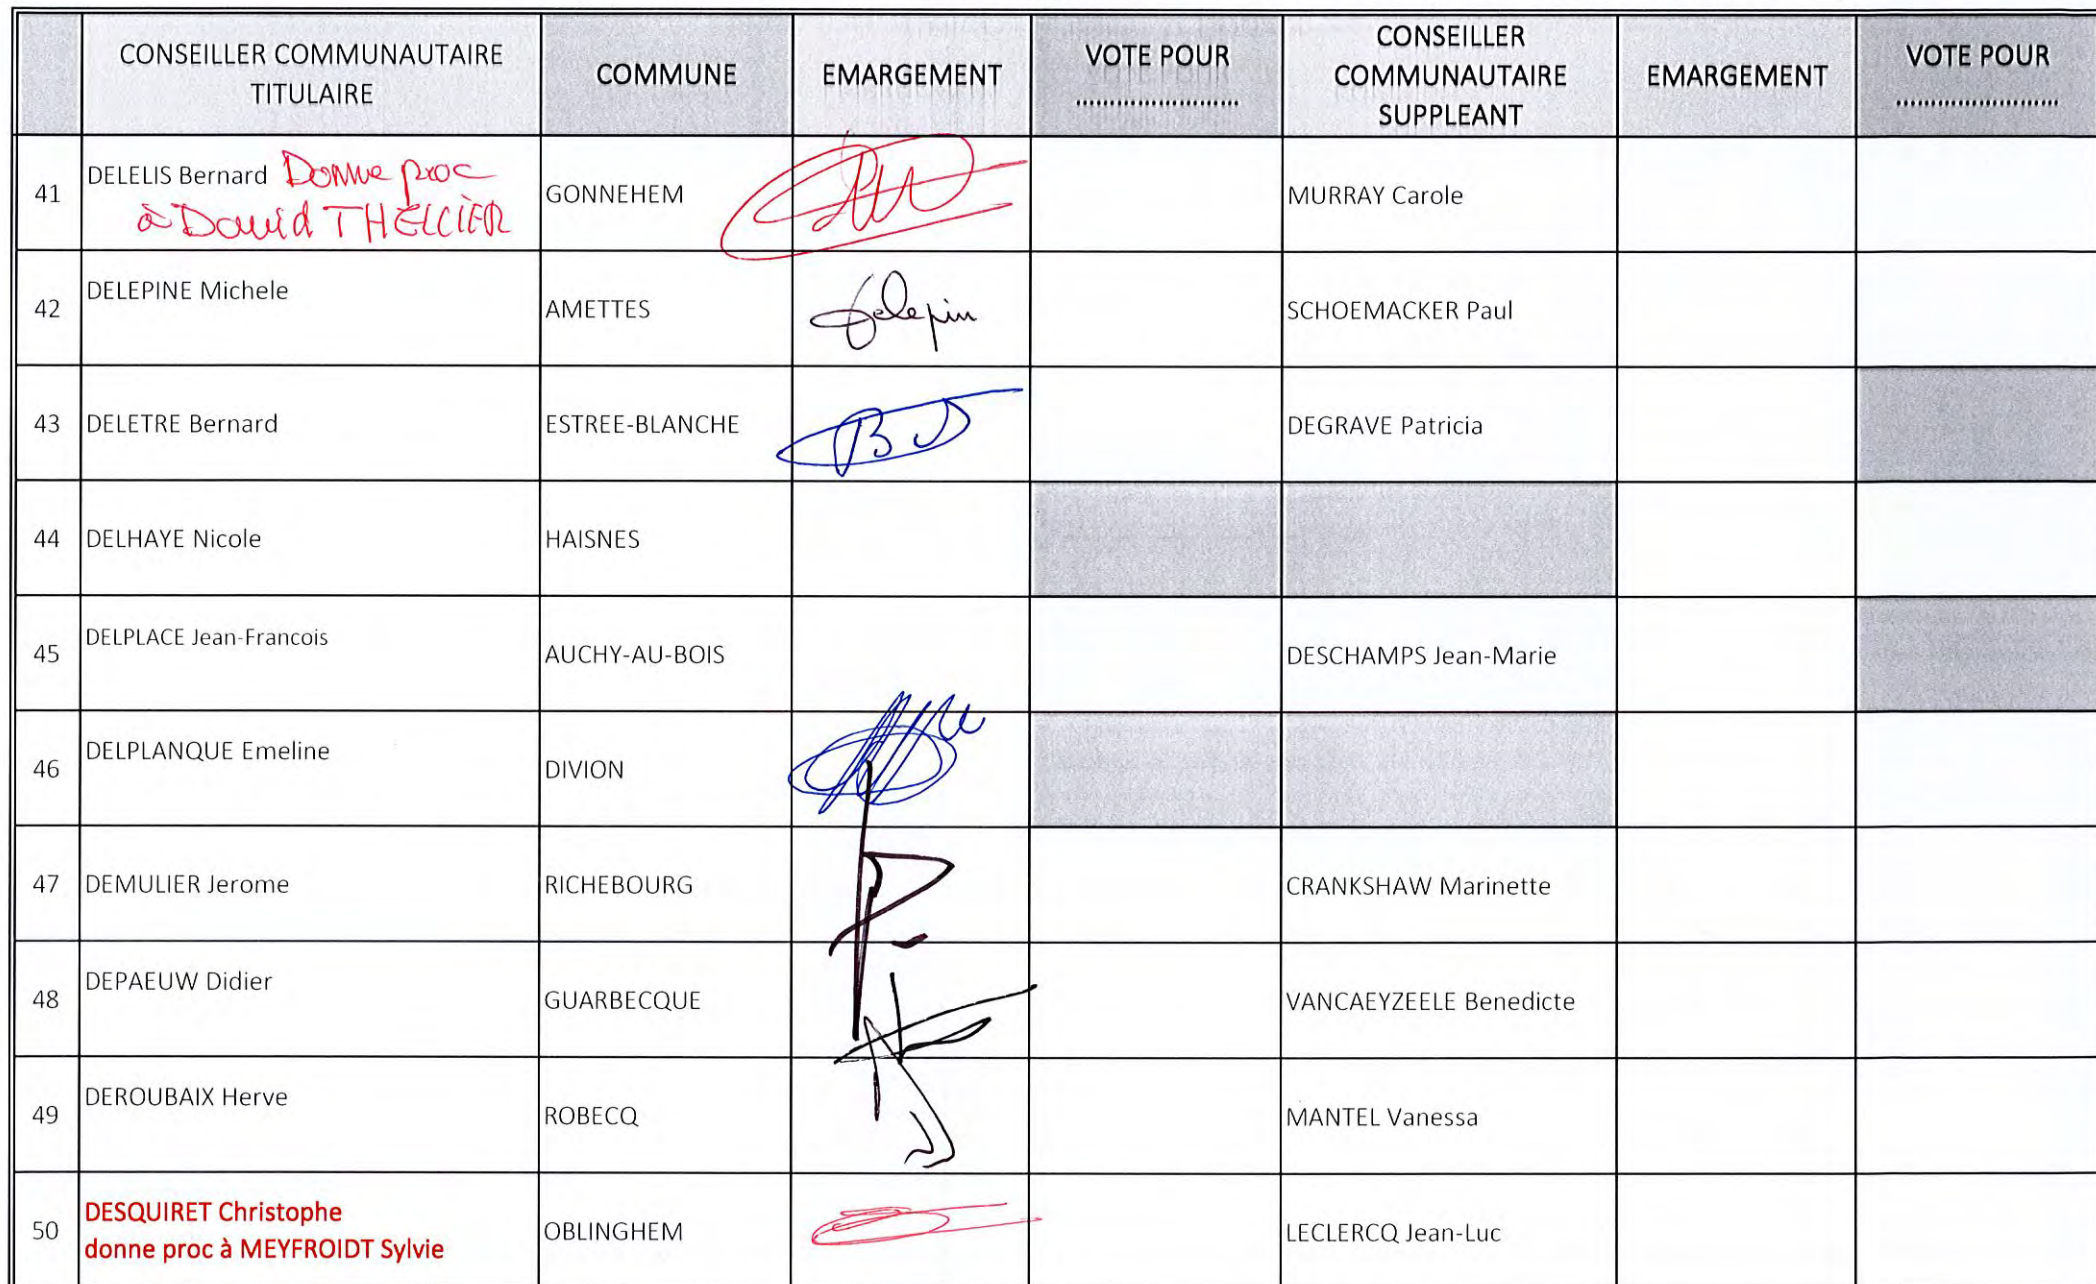 CONSEILLER COMMUNAUTAIRE
TITULAIRE
COMMUNE
EMARGEMENT
VOTE POUR
..........................
CONSEILLER
COMMUNAUTAIRE
SUPPLEANT
EMARGEMENT
VOTE POUR
..........................
41
DELELIS Bernard Donne proc
à David THELLIER
GONNEHEM
MURRAY Carole
42
DELEPINE Michele
AMETTES
Delepin
SCHOEMACKER Paul
43
DELETRE Bernard
ESTREE-BLANCHE
BD
DEGRAVE Patricia
44
DELHAYE Nicole
HAISNES
45
DELPLACE Jean-Francois
AUCHY-AU-BOIS
DESCHAMPS Jean-Marie
46
DELPLANQUE Emeline
DIVION
47
DEMULIER Jerome
RICHEBOURG
CRANKSHAW Marinette
48
DEPAEUW Didier
GUARBECQUE
VANCAEYZEELE Benedicte
49
DEROUBAIX Herve
ROBECQ
MANTEL Vanessa
50
DESQUIRET Christophe
donne proc à MEYFROIDT Sylvie
OBLINGHEM
LECLERCQ Jean-Luc